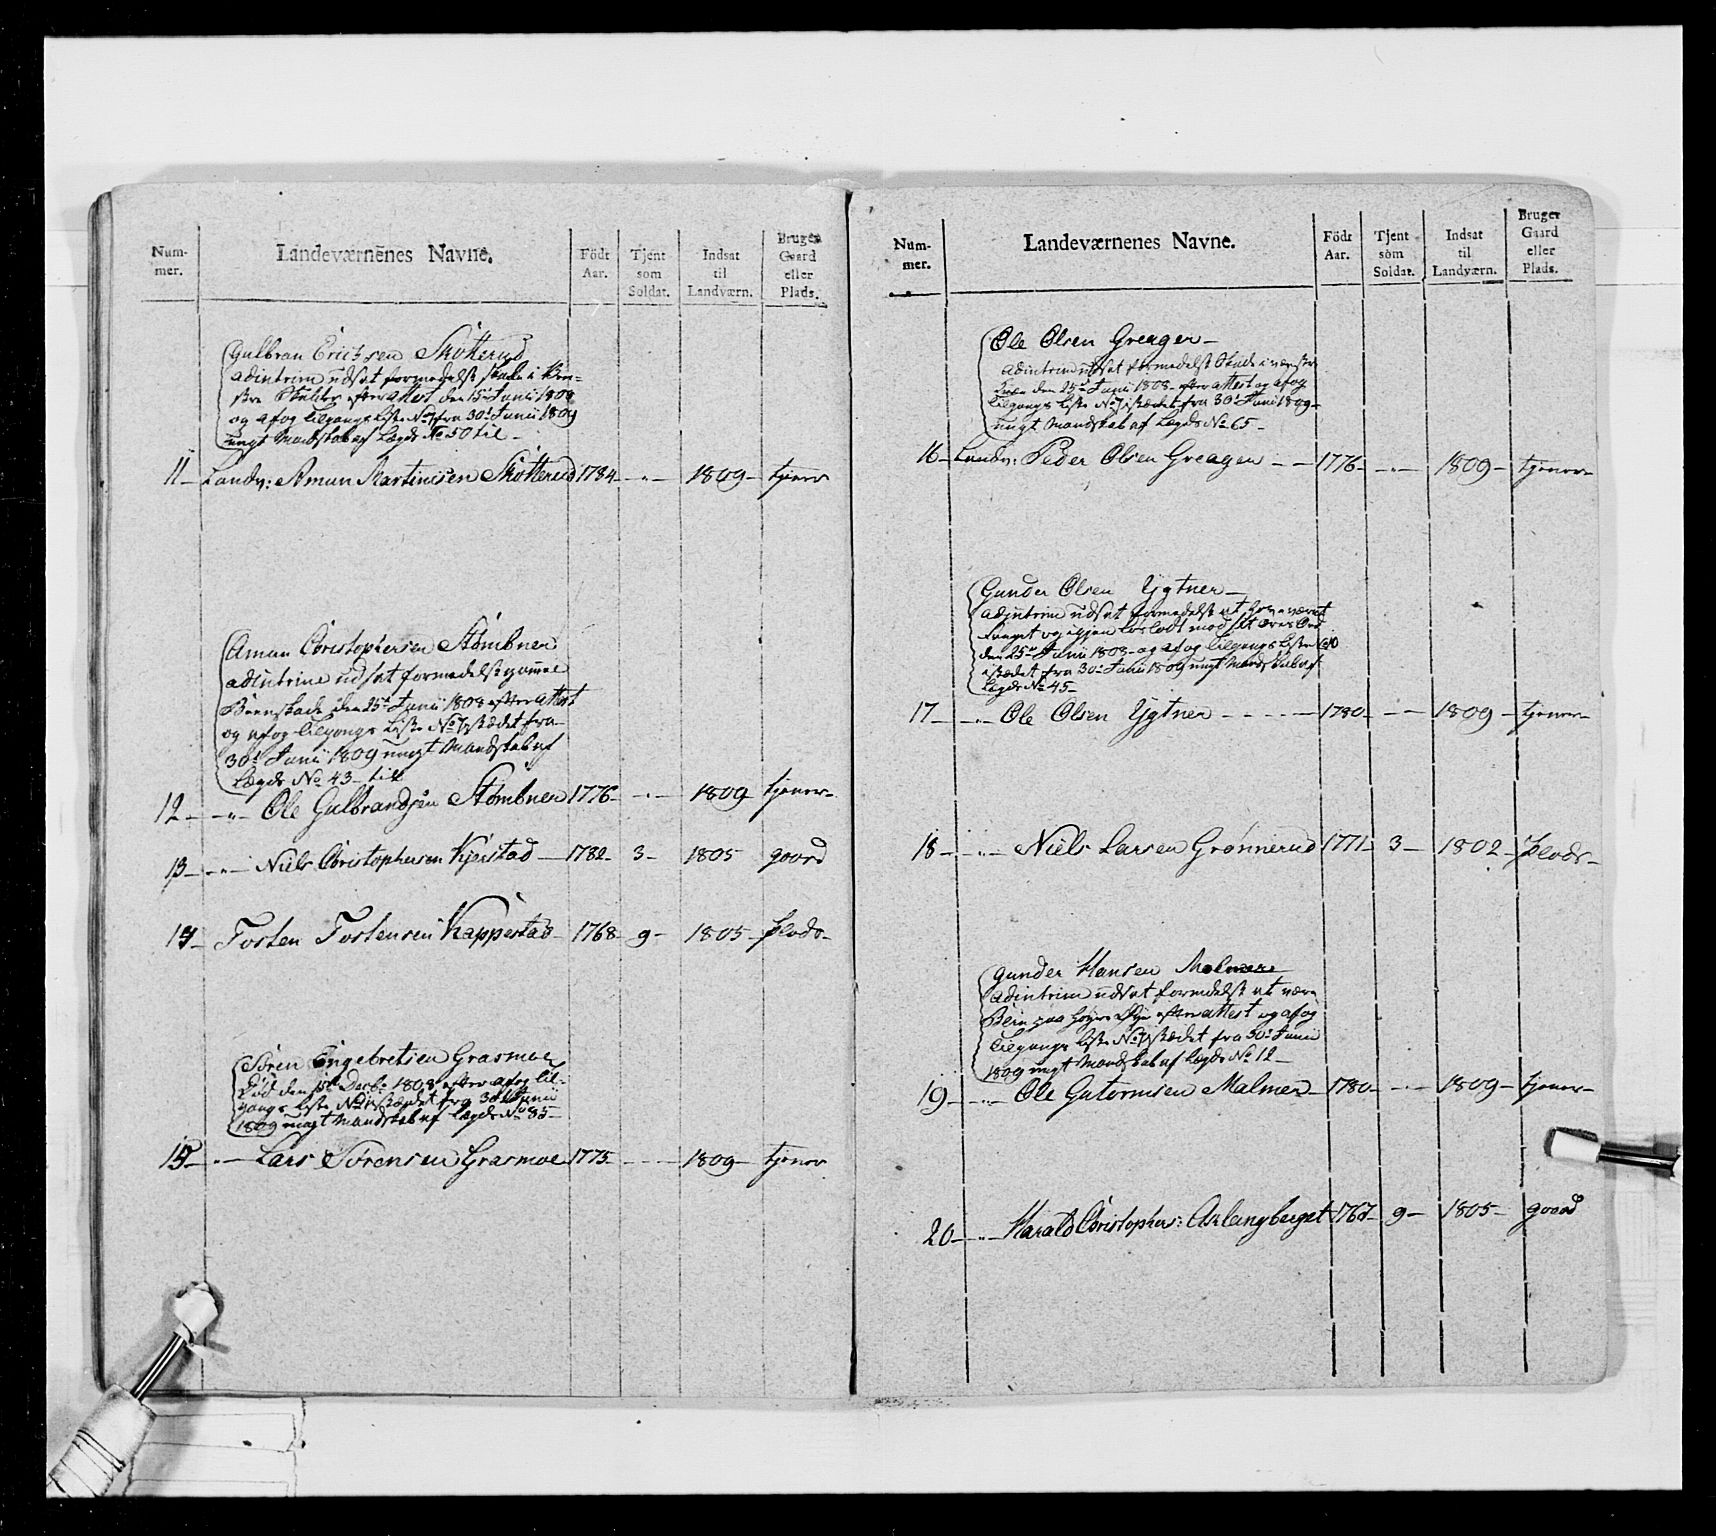 Num-
mer.
Landeværnenes Navne.
Födt
Aar.
Tjent
som
Soldat.
Indsat
til
Landværn.
Bruger
Gaard
eller
Plads.
Gulbran Erichsen Skotterud
adintrim udsat formedelst skade i
efter attest den 15de Junii 1809
og afog Tilgangs Liste No 7 fra 30te Junii 1809
ungt Mandskab af Lægds No 50 til
11 Landv: Amun Martinisen Skotterud 1784 - " - 1809 - tjener
Amun Christophersen Stömbner
adintrim udsat formedelst gamle
Beenskade den 25de Junii 1808 efter attest
og afog Tilgangs Liste No 7 istædet fra
30te Junii 1809 ungt Mandskab af
Lægds No 43 - til
12 - " - Ole Gulbrandsen Stömbner 1776 - " - 1809 tjener
13 - " - Niels Christophersen Kjerstad - 1782 - 3 - 1805 gaard
14 - Tosten Tostensen Kappestad - 1768 - 9 - 1805 - plads -
Sören Engebretsen Grasmoe
Död den Decbr 1808 efter afog Til-
gangs Liste No 7 istædet fra 30te Junii
1809 ungt Mandskab af Lægds No 35 -
15 - " - Lars Sörensen Grasmoe 1775 - - - 1809 - tjener
Num-
mer.
Landeværnenes Navne.
Födt
Aar.
Tjent
som
Soldat.
Indsat
til
Landværn.
Bruger
Gaard
eller
Plads.
Ole Olsen Greager -
adintrim udsat formedelst Skade i venstre
den 25de Junii 1808 - efter attest og afog
Tilgangs Liste No 7 istædet fra 30te Junii 1809 -
ungt Mandskab af Lægds No 65 -
16 - Landv: Peder Olsen Greager - - 1776 - " - 1809 - tjener -
Gunder Olsen Ygtner -
adjntrim udsat formedelst at have været
fanget og igjen löslodt mod sit æres Ord
den 25de Junii 1808 - og afog Tilgangs Liste No 10
istædet fra 30te Junii 1809 ungt Mandskab af
Lægds No 45 -
17 - " - Ole Olsen Ygtner - - - - 1780 - - 1809 - tjener -
18 - " - Niels Larsen Grönnerud 1771 - 3 - 1802 - plads -
Gunder Hansen Malmer
adintrim udsat formedelst at være
paa höyre Öye efter attest og afog
Tilgangs Liste No 7 istædet fra 30te Junii
1809 ungt Mandskab af Lægds No 12 -
19 - " - Ole Gutormsen Malmer - 1780 - - - 1809 - tjener -
20 - " - Harald Christophers: Aslangberget 1767 - 9 - 1805 - gaard